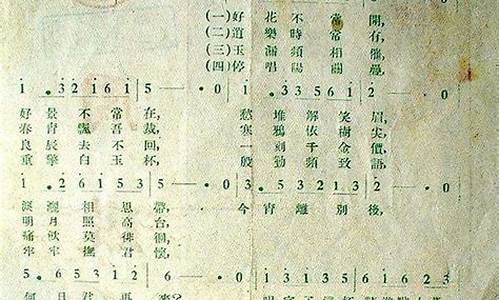 (一)好花不常開,
(二)逍樂時常有,
(三)玉漏頻相催,
(四)停唱陽關疊,
1 . 32161 | 5 — · 0 | 1 . 33561 | 2 — · 23
好景不常在, 愁堆解笑眉,
春宵飄吾裁, 寒鴉依樹尖,
良辰去不回, 一刻千金價,
重擎白玉杯, 殷勤頻致語
1 . 26153 | 5 — · 0 | 3 . 53213 | 2 — · 0
淚灑相思帶, 今宵離別後,
明月照高台,
痛飲莫徘徊,
牢牢撫君懷
5 . 65312 | 6 — · 0
何日君再來?